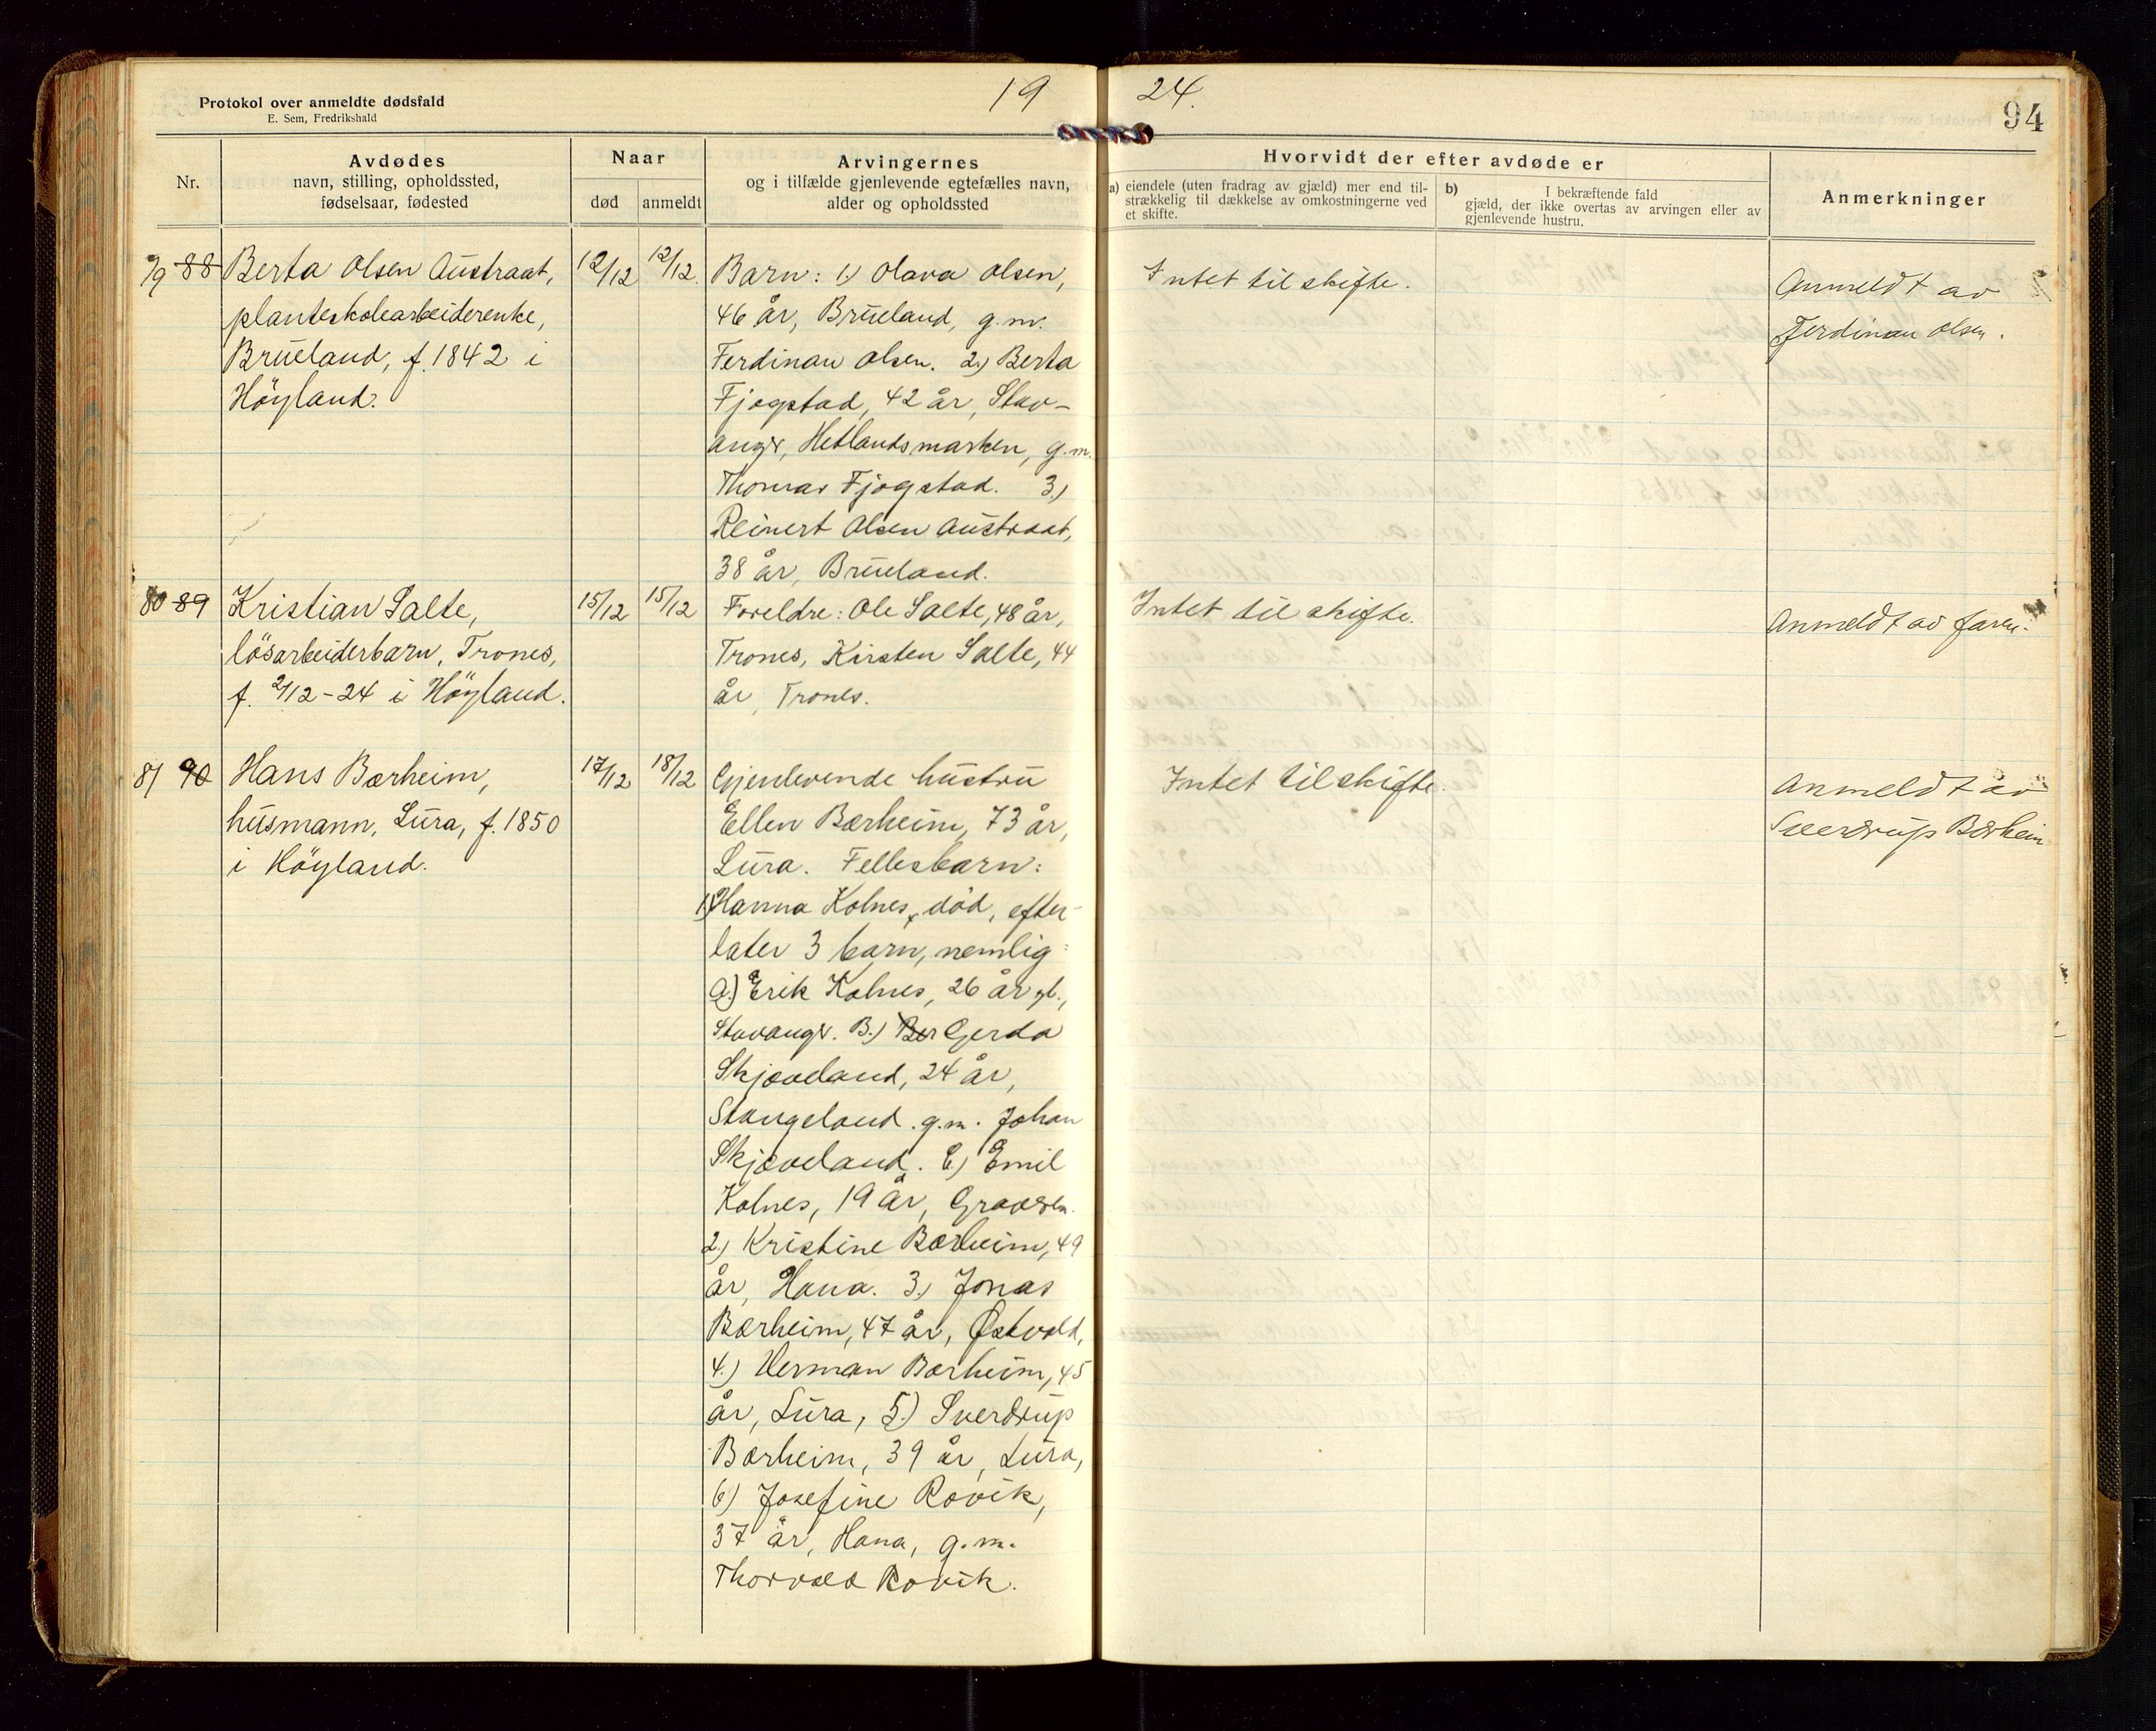 Protokol over anmeldte dødsfald
E. Sem, Fredrikshald
19 24.
94
Nr.
Avdødes
navn, stilling, opholdssted,
fødselsaar, fødested
Naar
død
anmeldt
Arvingernes
og i tilfælde gjenlevende egtefælles navn,
alder og opholdssted
Hvorvidt der efter avdøde er
a) eiendele (uten fradrag av gjæld) mer end til-
strækkelig til dækkelse av omkostningerne ved
et skifte.
b) I bekræftende fald
gjæld, der ikke overtas av arvingen eller av
gjenlevende hustru.
Anmerkninger
79 88
Berta Olsen Austraat,
planteskolearbeiderenke,
Brueland, f. 1842 i
Höyland.
12/12
12/12.
Barn: 1.) Olava Olsen,
46 år, Brueland, g.m.
Ferdinan Olsen. 2.) Berta
Fjogstad, 42 år, Stav-
anger, Hetlandsmarken, g.m.
Thomas Fjogstad. 3.)
Reinert Olsen Austraat,
38 år, Brueland.
Intet til skifte.
Anmeldt av
Ferdinan Olsen.
80 89
Kristian Salte,
lösarbeiderbarn, Trones,
f. 2/12-24 i Höyland.
15/12
15/12
Foreldre: Ole Salte, 48 år,
Trones, Kirsten Salte, 44
år, Trones.
Intet til skifte.
Anmeldt av faren.
81 90
Hans Bærheim,
husmann, Lura, f. 1850
i Höyland.
17/12
18/12
Gjenlevende hustru
Ellen Bærheim, 73 år,
Lura. Fellesbarn:
1.) Hanna Kolnes, död, efter-
later 3 barn, nemlig:
A.) Erik Kolnes, 26 år gl.,
Stavanger. B.) Ber Gerda
Skjæveland, 24 år,
Stangeland. g.m. Johan
Skjæveland. C.) Emil
Kolnes, 19 år, Graveren.
2.) Kristine Bærheim, 49
år, Hana. 3.) Jonas
Bærheim, 47 år, Østvold,
4.) Herman Bærheim, 45
år, Lura, 5.) Sverdrup
Bærheim, 39 år, Lura,
6.) Josefine Rovik,
37 år, Hana, g.m.
Thorvald Rovik.
Intet til skifte.
Anmeldt av
Sverdrup Bærheim